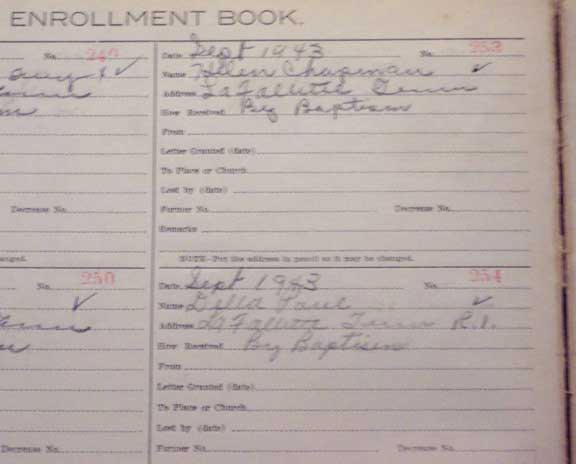 ENROLLMENT BOOK.
No. 249
Decrease No.
No. 250
Decrease No.
Date Sept 1943 No. 253
Name Hellen Chapman ✓
Address LaFallette Tenn
How Received By Baptism
From
Letter Granted (date)
To Place or Church
Lost by (date)
Former No. Decrease No.
Remarks
NOTE—Put the address in pencil as it may be changed.
Date Sept 1943 No. 254
Name Della ✓
Address LaFallette Tenn R.1.
How Received By Baptism
From
Letter Granted (date)
To Place or Church
Lost by (date)
Former No. Decrease No.